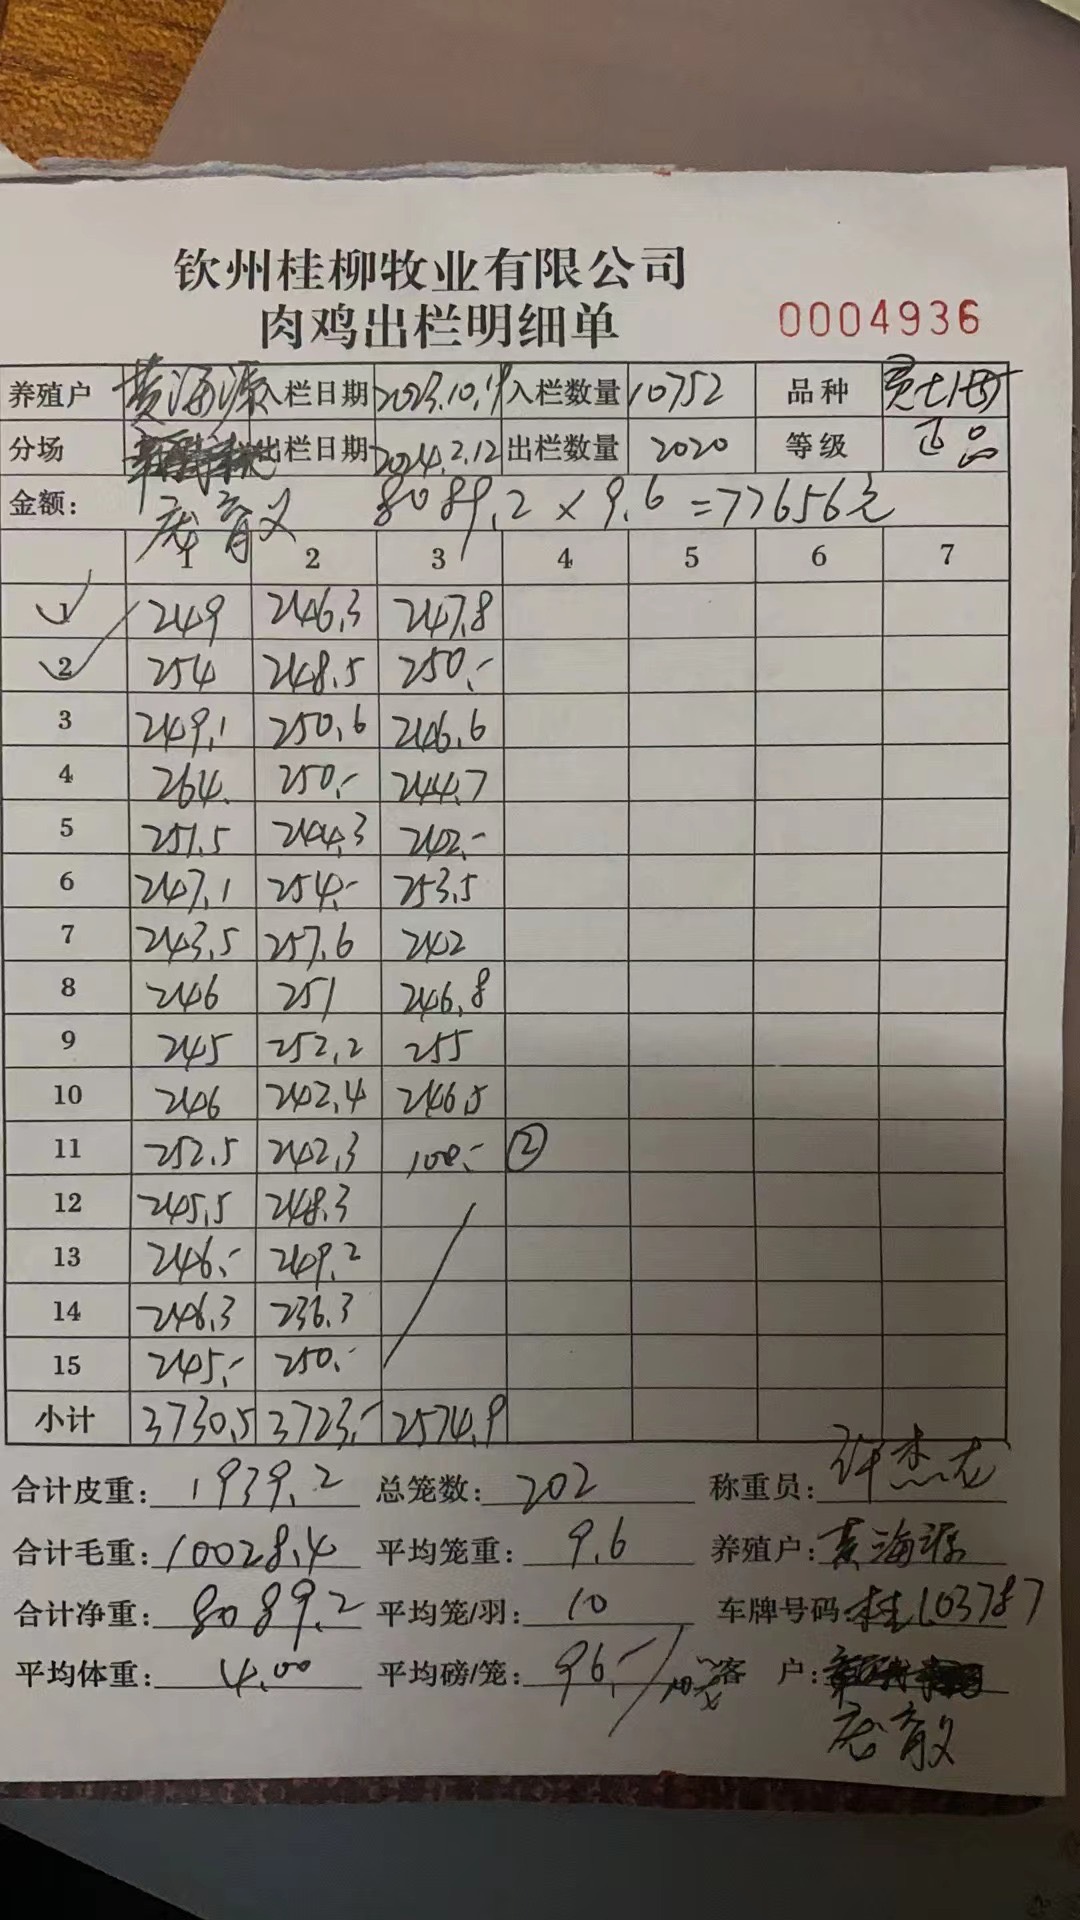 钦州桂柳牧业有限公司
肉鸡出栏明细单 0004936
养殖户 黄海源 入栏日期 2023.10.19 入栏数量 10752 品种
分场 出栏日期 2024.2.12 出栏数量 2020 等级 正品
金额: 庞育义 8089.2 × 9.6 = 77656元
1 2 3 4 5 6 7
1 249 246.3 247.8
2 254 248.5 250.-
3 249.1 250.6 246.6
4 264. 250.- 244.7
5 251.5 244.3 242.-
6 247.1 254.- 253.5
7 243.5 257.6 242
8 246 251 246.8
9 245 252.2 255
10 246 242.4 246.5
11 252.5 242.3 100.- ②
12 245.5 248.3
13 246.- 249.2
14 246.3 236.3
15 245.- 250.-
小计 3730.5 3723.- 2574.9
合计皮重: 1939.2 总笼数: 202 称重员: 许杰龙
合计毛重: 10028.4 平均笼重: 9.6 养殖户: 黄海源
合计净重: 8089.2 平均笼/羽: 10 车牌号码: 桂L03787
平均体重: 4.00 平均磅/笼: 96.- 客 户:
庞育义